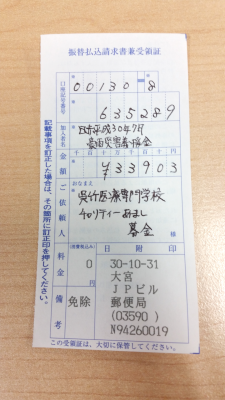 振替払込請求書兼受領証
口座記号番号
00130 8
635289
加入者名
日赤平成30年7月
豪雨災害義援金
金額
千 百 十 万 千 百 十 円
¥33903
ご依頼人
おなまえ
呉竹医療専門学校
チャリティーあまし
募金
様
料金
(消費税込み)
0
円
日附印
30-10-31
大宮
JPビル
郵便局
(03590 )
N94260019
備考
免除
記載事項を訂正した場合は、その箇所に訂正印を押してください。
この受領証は、大切に保管してください。